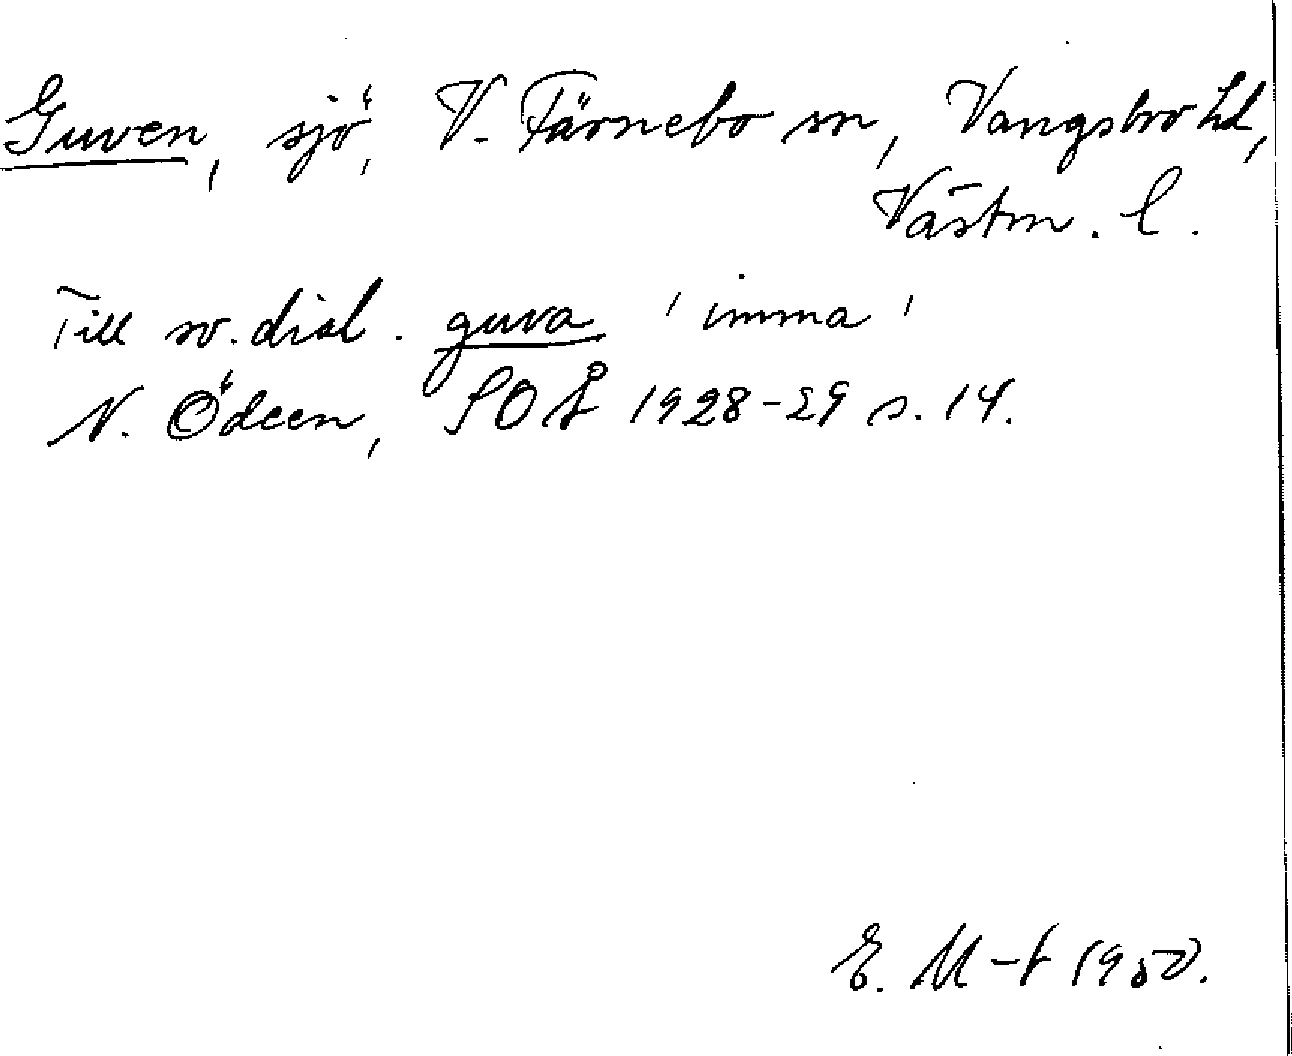 Guven, sjö, V. Färnebo sn, Vangsbro hd,
Västm. l.
Till sv. dial. guva 'imma'
N. Ödeen, SOÅ 1928-29 s. 14.
E. M-t 1950.